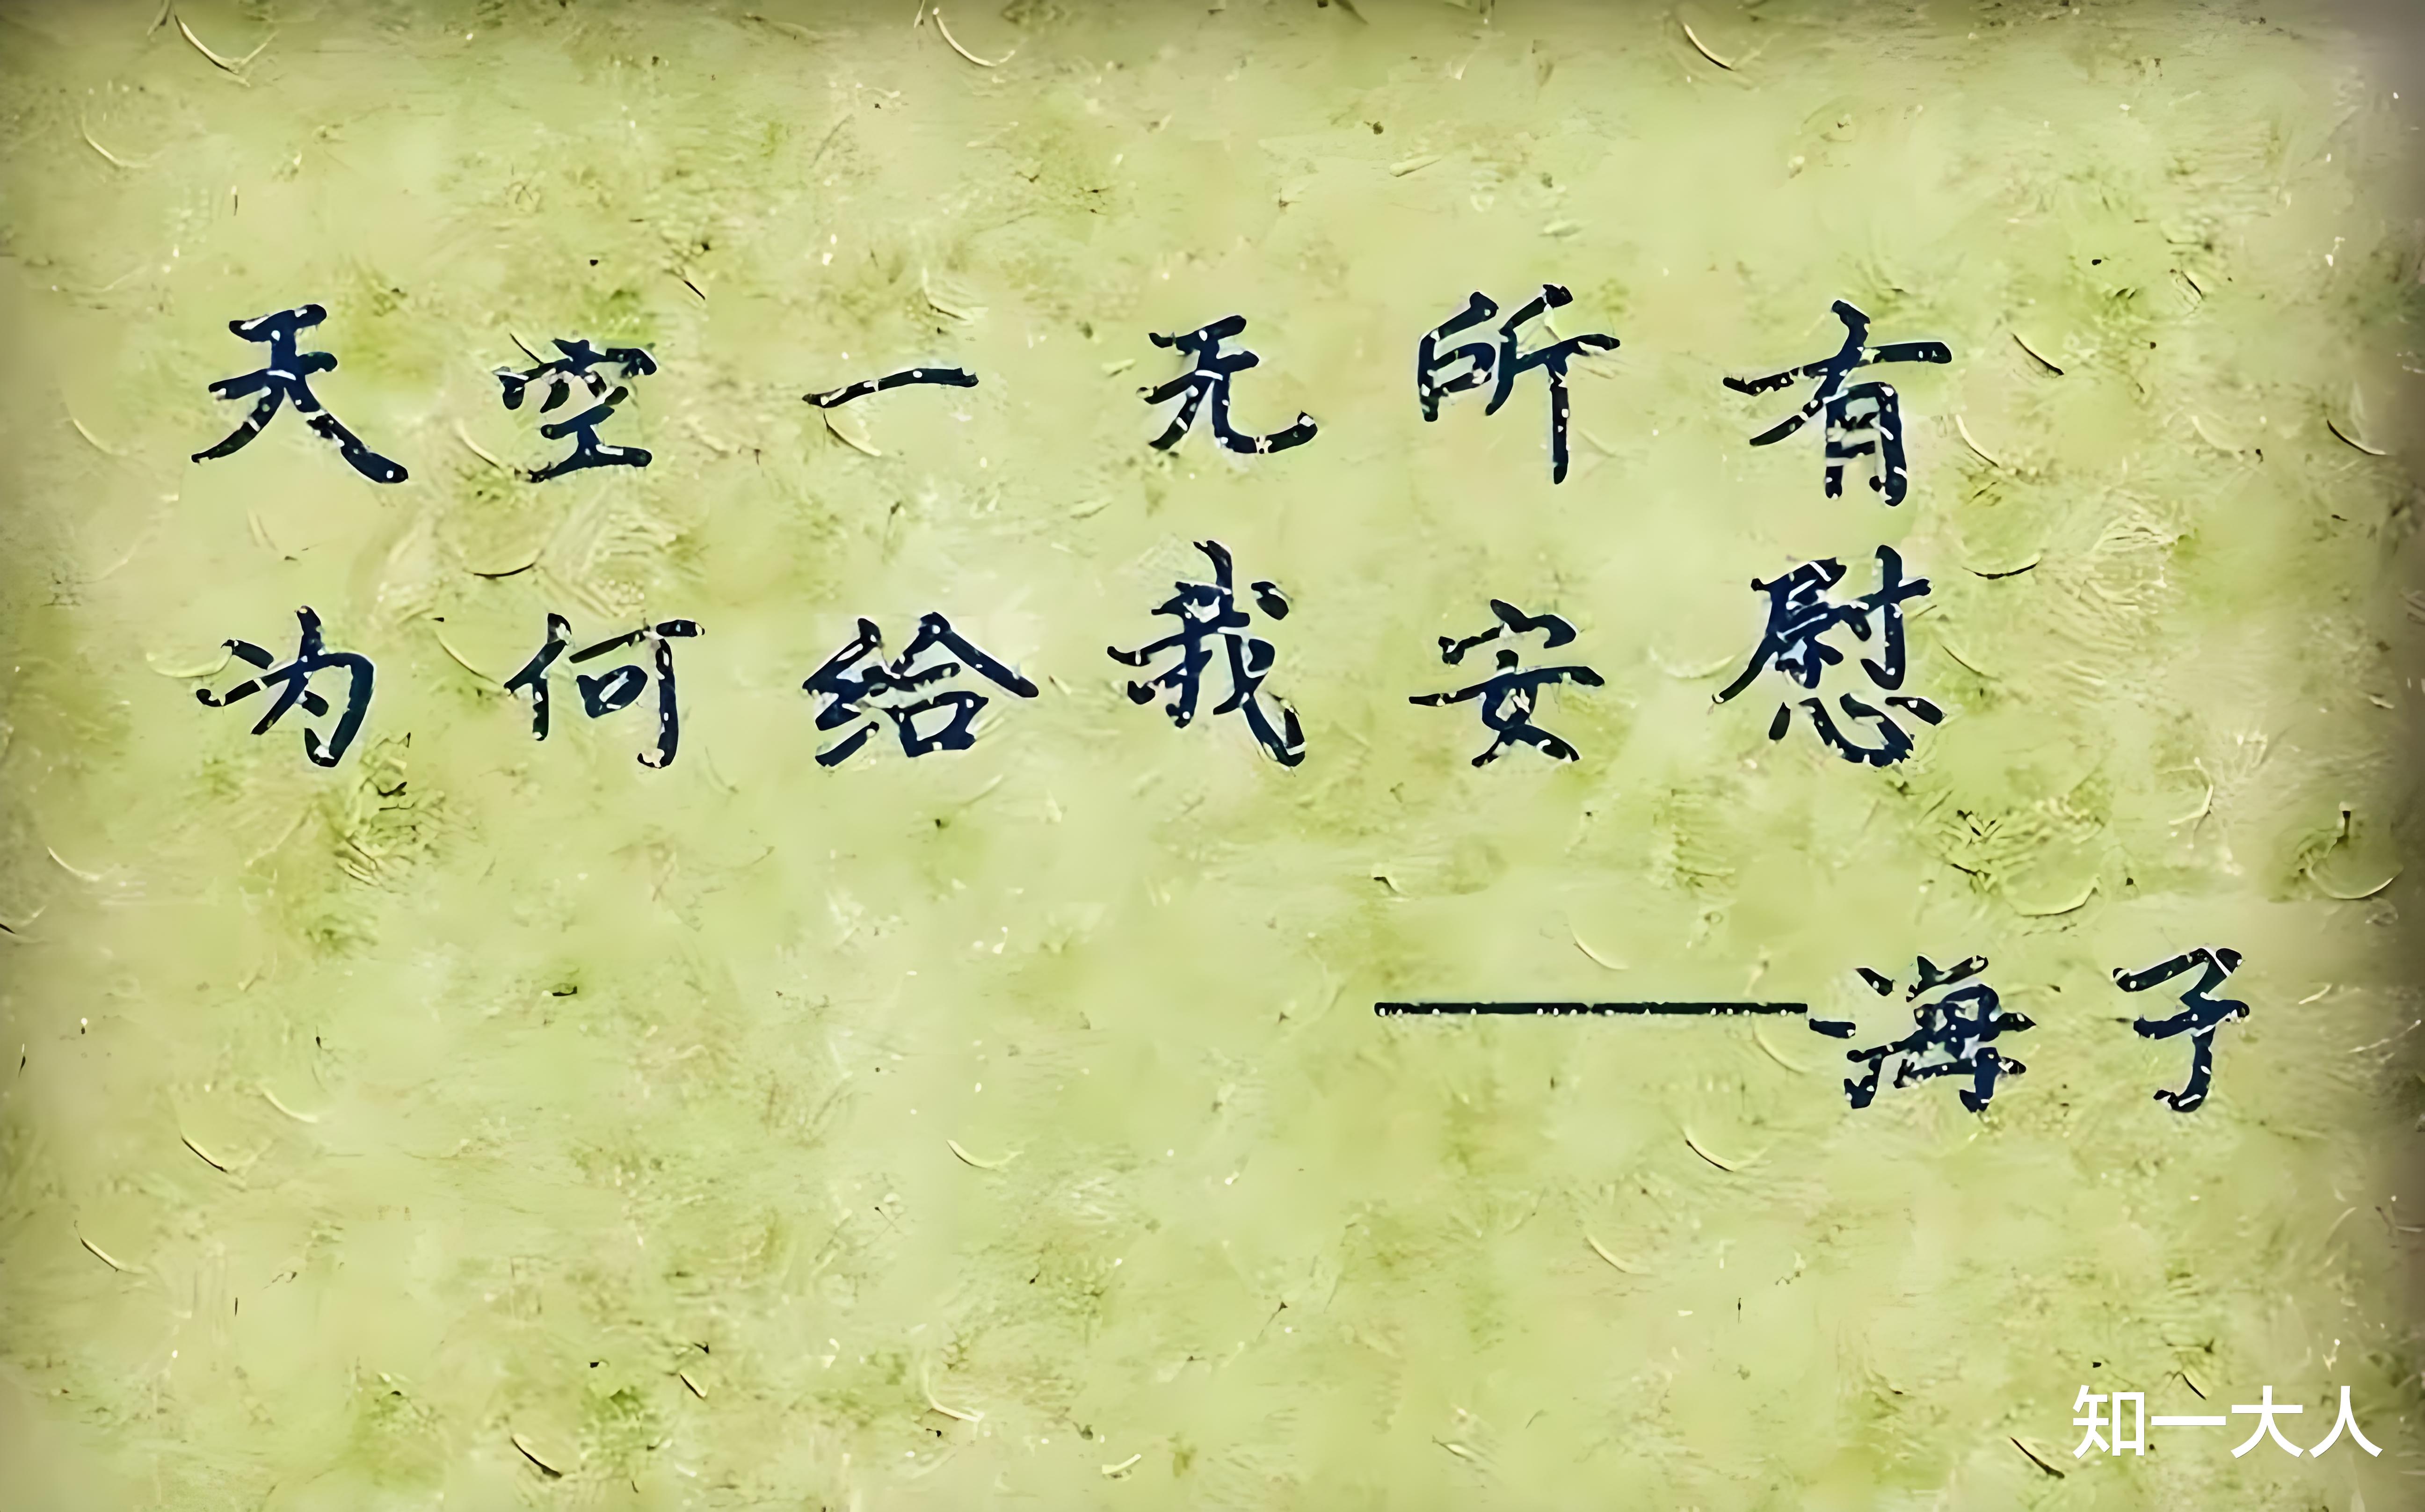 天空一无所有
为何给我安慰
——海子
知一大人